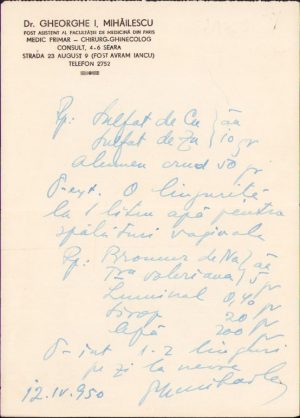 Dr. GHEORGHE I. MIHĂILESCU
FOST ASISTENT AL FACULTĂȚII DE MEDICINĂ DIN PARIS
MEDIC PRIMAR - CHIRURG-GHINECOLOG
CONSULT. 4-6 SEARA
STRADA 23 AUGUST 9 (FOST AVRAM IANCU)
TELEFON 2752
Rp: Sulfat de Cu } āā
Sulfat de Zn } 10 gr
Alumen crud 50 gr
D-ext. O linguriță
la 1 litru apă pentru
spălături vaginale
Rp: Bromur de Na } āā
Tra Valeriana } 5 gr
Luminal 0,40
Sirop 20 gr
Apă 200 gr
D-int 1-2 linguri
pe zi la nevoe
12.IV.950